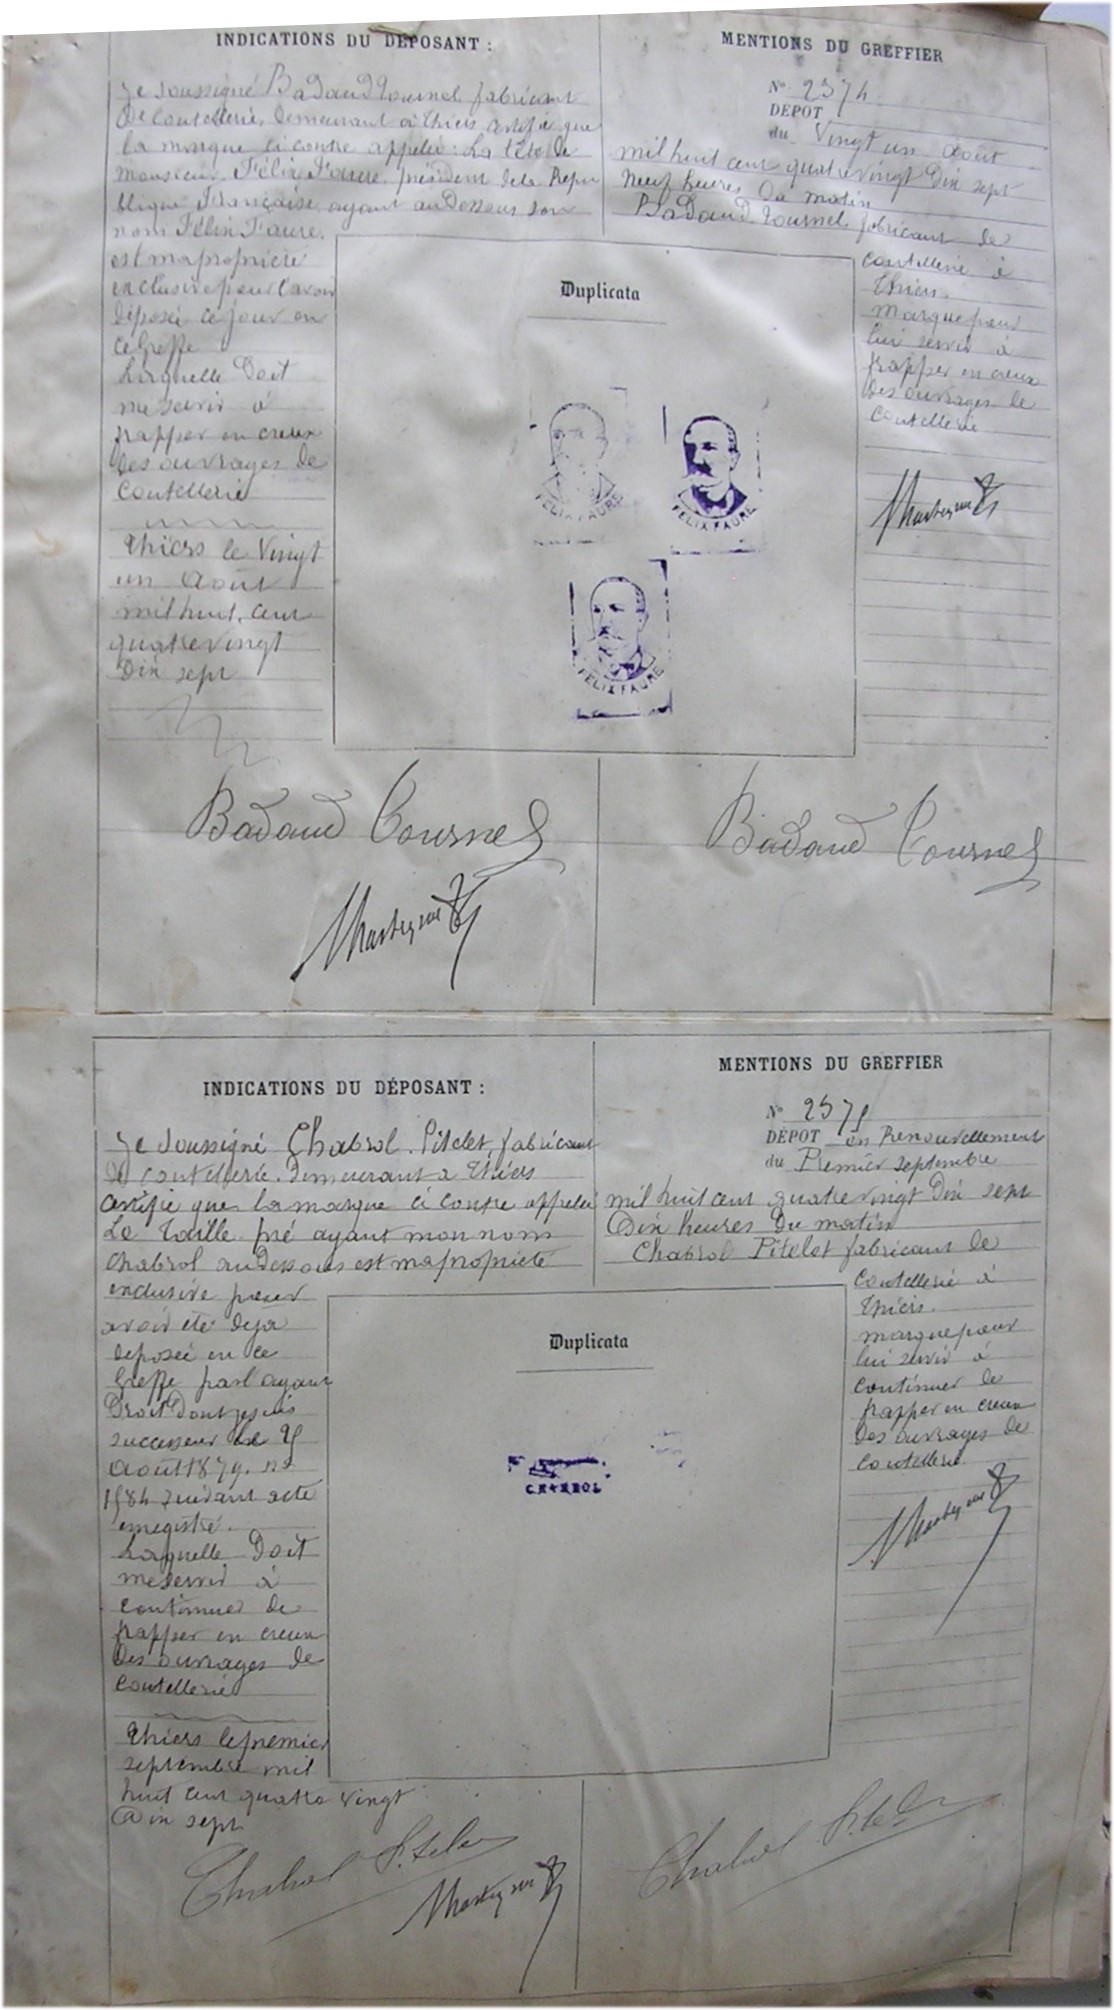 INDICATIONS DU DÉPOSANT :
Je soussigné Badaud Tournel fabricant
de coutellerie, demeurant à Thiers certifie que
la marque ci contre appelée : La tête de
Monsieur Félix Faure, président de la Répu
blique Française ayant au Dessous son
nom Félix Faure.
est ma propriété
exclusive pour l'avoir
déposée ce jour en
ce Greffe
Laquelle Doit
me servir à
frapper en creux
des ouvrages de
Coutellerie
Thiers le Vingt
un Août
mil huit cent
quatre vingt
Dix sept
MENTIONS DU GREFFIER
N° 2574
DÉPOT
du Vingt un Août
mil huit cent quatre vingt Dix sept
neuf heures Du matin
Badaud Tournel fabricant de
Coutellerie à
Thiers.
Marque pour
lui servir à
frapper en creux
des ouvrages de
Coutellerie
Duplicata
FELIX FAURE
FELIX FAURE
FELIX FAURE
Badaud Tournel
Badaud Tournel
INDICATIONS DU DÉPOSANT :
Je soussigné Chabrol Pitelet, fabricant
de coutellerie. Demeurant à Thiers
certifie que la marque ci contre appelée
Le Taille pré ayant mon nom
Chabrol au Dessous est ma propriété
exclusive pour
avoir été déja
déposée en ce
Greffe par l'ayant
Droit Dont je suis
successeur le 25
Août 1879. n°
1584 suivant acte
enregistré.
Laquelle Doit
me servir à
continuer de
frapper en creux
Des ouvrages de
Coutellerie
Thiers le premier
septembre mil
huit cent quatre vingt
Dix sept
MENTIONS DU GREFFIER
N° 2575
DÉPOT en Renouvellement
du Premier septembre
mil huit cent quatre vingt Dix sept
Dix heures Du matin
Chabrol Pitelet fabricant de
Coutellerie à
Thiers.
marque pour
lui servir à
continuer de
frapper en creux
Des ouvrages de
Coutellerie
Duplicata
CHABROL
Chabrol Pitelet
Chabrol Pitelet